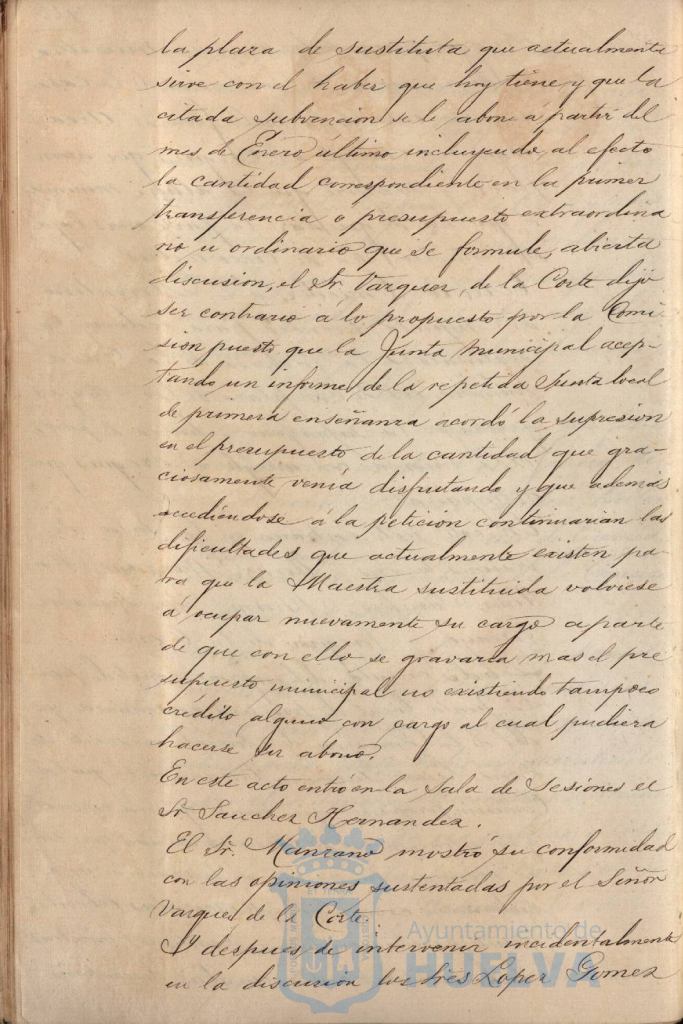 la plaza de sustituta que actualmente
sirve con el haber que hoy tiene y que la
citada subvencion se le abone á partir del
mes de Enero último incluyendo al efecto
la cantidad correspondiente en la primer
transferencia o presupuesto extraordina
rio u ordinario que se formule, abierta
discusion, el Sr. Vazquez, de la Corte dijo
ser contrario á lo propuesto por la Comi
sion puesto que la Junta Municipal acep-
tando un informe de la repetida Junta local
de primera enseñanza acordó la supresion
en el presupuesto de la cantidad que gra-
ciosamente venía disfrutando y que además
accediéndose á la peticion continuarian las
dificultades que actualmente existen pa-
ra que la Maestra sustituida volviese
á ocupar nuevamente su cargo aparte
de que con ello se gravaria mas el pre
supuesto municipal no existiendo tampoco
crédito alguno con cargo al cual pudiera
hacerse su abono.
En este acto entró en la Sala de Sesiones el
Sr. Sanchez Hernandez.
El Sr. Manzano mostró su conformidad
con las opiniones sustentadas por el Señor
Vazquez de la Corte.
Y despues de intervenir incidentalmente
en la discusion los Sres Lopez Gomez
Ayuntamiento de
HUELVA